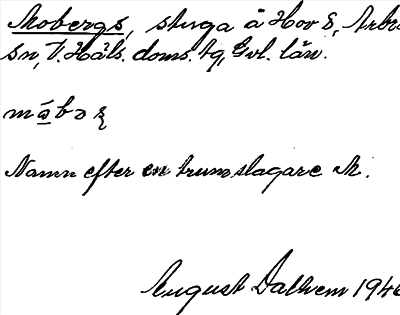 Mobergs, stuga å Hov 8, Arbrå
sn, V. Häls. doms. tg, Gvl. län.
Namn efter en trumslagare M.
August Dalhem